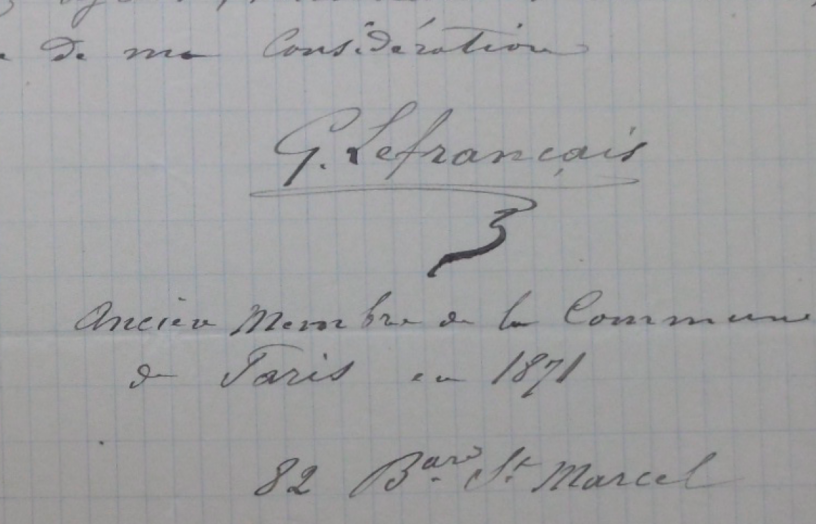 de ma Considération
G. Lefrançais
Ancien Membre de la Commune
de Paris en 1871
82 Bard St Marcel